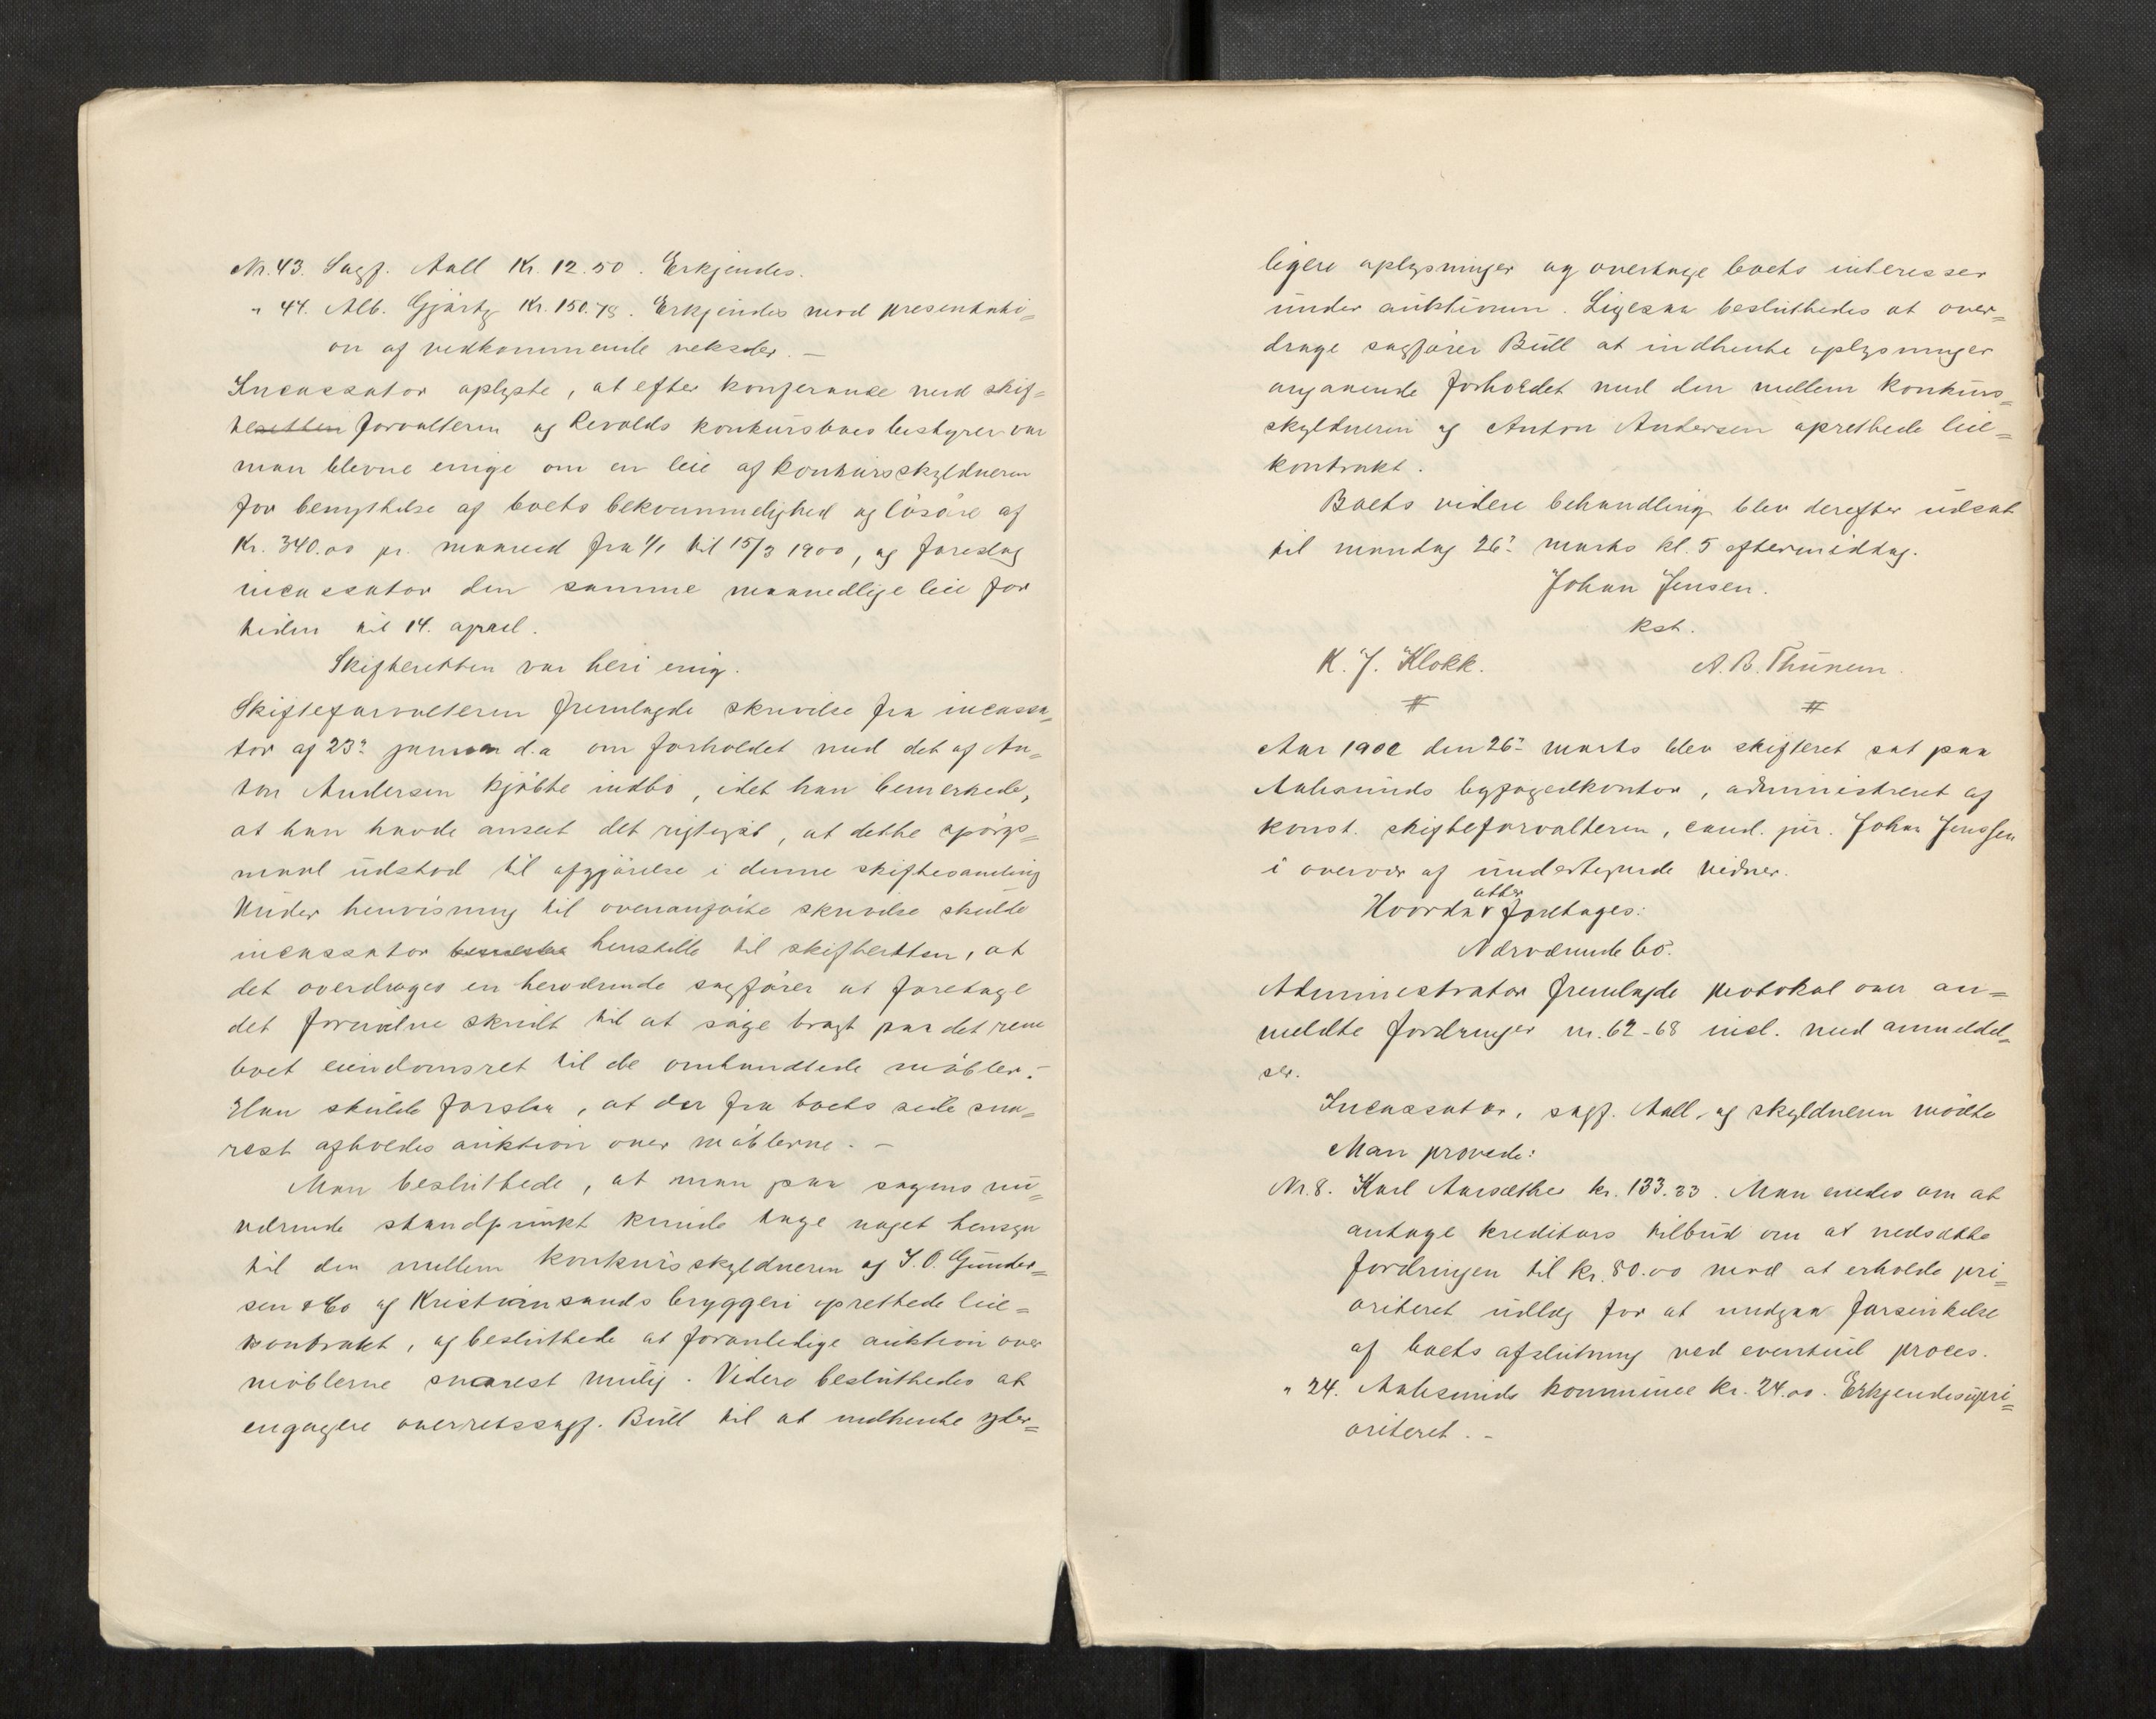 Nr. 43. Sagf. Aall Kr. 12.50. Erkjendes.
" 44. Alb. Gjørtz Kr. 150.78. Erkjendes mod presentati=
on af vedkommende veksler. —
Incassator oplyste, at efter konferanse med skif=
teretten forvalteren og Revolds konkursboes bestyrer var
man blevne enige om en leie af konkursskyldneren
for benyttelse af boets bekvemmelighed og løsøre af
Kr. 340.00 pr. maaned fra 1/1 til 15/3 1900, og foreslog
incassator den samme maanedlige leie for
tiden til 14. april.
Skifteretten var heri enig.
Skifteforvalteren fremlagde skrivelse fra incassa=
tor af 23de januar d.a om forholdet med det af An=
ton Andersen kjøbte indbo, idet han bemerkede,
at han havde anseet det rigtigst, at dette spørgs=
maal udstod til afgjørelse i denne skiftesamling
Under henvisning til ovenanførte skrivelse skulde
incassator henstille til skifteretten, at
det overdrages en herværende sagfører at foretage
det fornødne skridt til at søge bragt paa det rene
boet eiendomsret til de omhandlede møbler.-
Han skulde foreslaa, at der fra boets side sna=
rest afholdes auktion over møblerne. —
Man besluttede, at man paa sagens nu=
værende standpunkt kunde tage noget hensyn
til den mellem konkursskyldneren og J. O. Gunder=
sen & Co og Kristiansands bryggeri oprettede leie=
kontrakt, og besluttede at foranledige auktion over
møblerne snarest mulig. Videre besluttedes at
engagere overretssagf. Bull til at indhente yder=
ligere oplysninger og overtage boets interesser
under auktionen. Ligesaa besluttedes at over=
drage sagfører Bull at indhente oplysninger
angaaende forholdet med den mellem konkurs=
skyldneren og Anton Andersen oprettede leie=
kontrakt.
Boets videre behandling blev derefter udsat
til mandag 26de marts kl. 5 eftermiddag.
Johan Jensen.
kst.
K. J. Klokk. A. B. Thunem.
# #
Aar 1900 den 26de marts blev skifteret sat paa
Aalesunds byfogedkontor, administreret af
konst. skifteforvalteren, cand. jur. Johan Jenssen
i overvær af undertegnede vidner.
Hvorda atter foretages:
Nærværende bo.
Administrator fremlagde protokol over an=
meldte fordringer nr. 62-68 incl. med anmeldel=
ser.
Incassator, sagf. Aall, og skyldneren mødte
Man prøvede:
Nr. 8. Karl Aarsæther kr. 133.33. Man enedes om at
antage kreditors tilbud om at nedsætte
fordringen til kr. 80.00 mod at erholde pri=
oriteret udlæg for at undgaa forsinkelse
af boets afslutning ved eventuel proces.
" 24. Aalesunds kommune kr. 24.00. Erkjendes upri=
oriteret. -